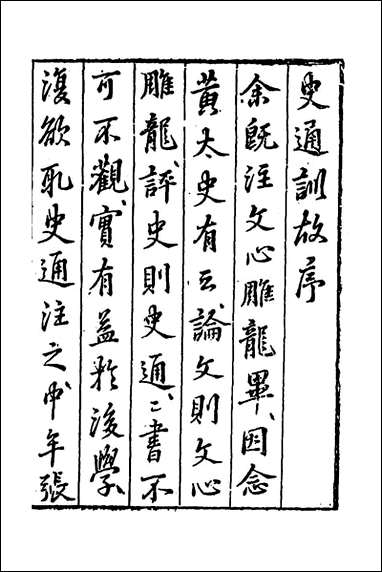 史通訓故序
余既注文心雕龍畢、因念
黄太史有云、論文則文心
雕龍、評史則史通、二書不
可不觀、實有益於後學
復欲取史通注之、中年張